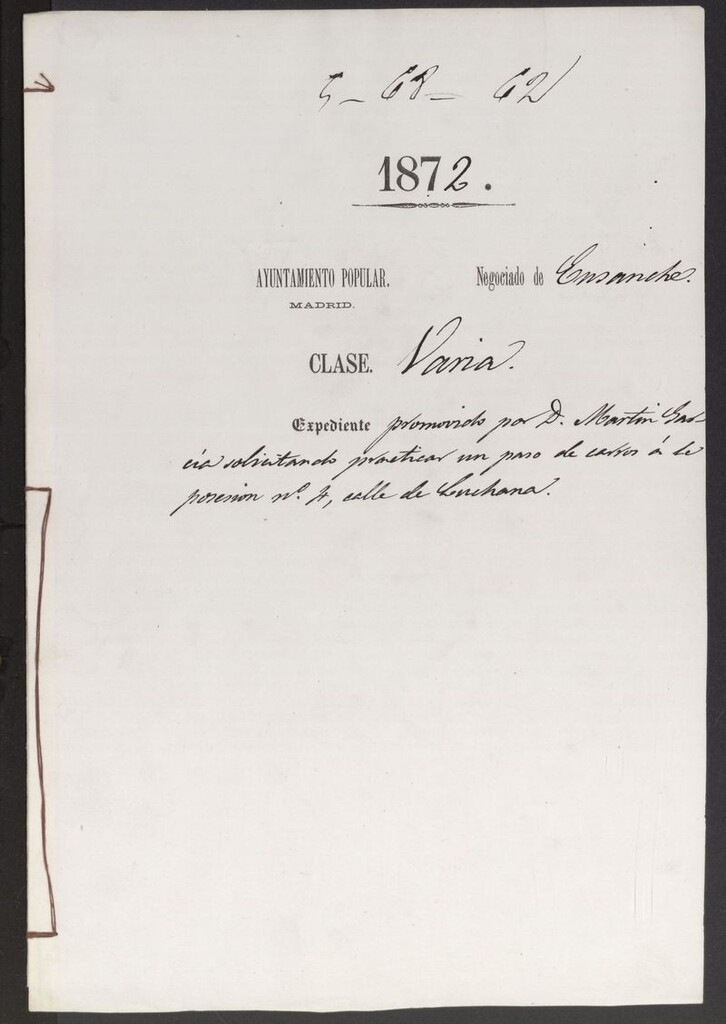 5 - 68 - 62
1872.
AYUNTAMIENTO POPULAR. Negociado de Ensanche.
MADRID.
CLASE. Varia.
Expediente promovido por D. Martin Gar-
cia solicitando practicar un paso de carros á la
posesion nº. 4, calle de Luchana.